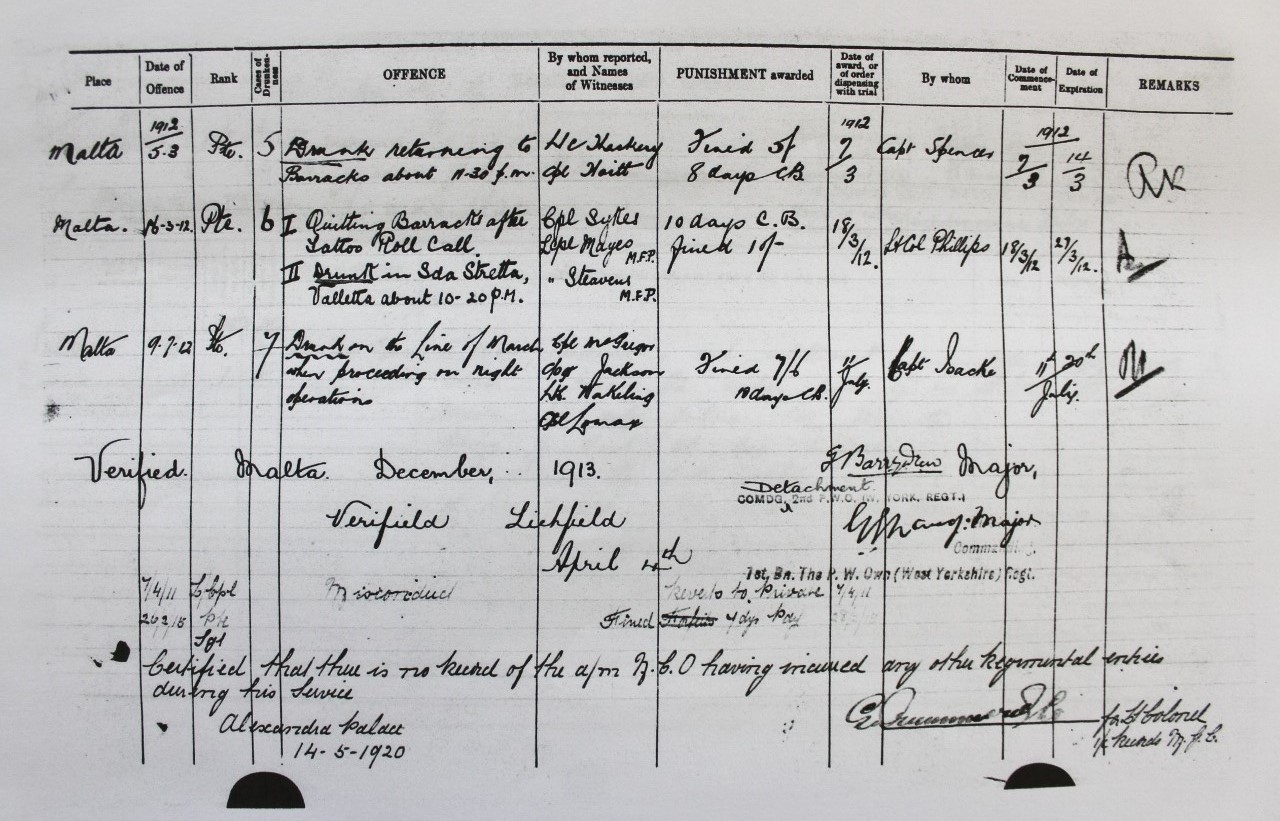 Place Date of Offence Rank Cases of Drunkenness OFFENCE By whom reported, and Names of Witnesses PUNISHMENT awarded Date of award, or of order dispensing with trial By whom Date of Commencement Date of Expiration REMARKS
1912 1912 1912
Malta 5.3 Pte. 5 Drunk returning to Fined 5/ 7/3 Capt Spencer 7/3 14/3
Barracks about 11-30 p.m. Cpl 8 days CB
Malta. 16-3-12. Pte. 6 I Quitting Barracks after Cpl Sykes 10 days C.B. 18/3/12.
Tattoo Roll Call. Lcpl Mayes M.F.P. fined 10/- Lt Col Phillips 18/3/12 27/3/12.
II Drunk in Sda Stretta, " Steavens
Valletta about 10-20 P.M. M.F.P.
Malta 9.7.12 Pte. 7 Drunk on the Line of March Cpl McGregor
when proceeding on night Jackson Fined 7/6 11/July. Capt 11th 20th July.
operations Wakeling 10 days CB.
Cpl Lomax
Verified. Malta. December, 1913. Major,
Detachment
COMDG, 2nd P.W.O. (W. YORK. REGT.)
Verifield Lichfield Major
April Commanding.
1st, Bn. The P. W. Own (West Yorkshire) Regt.
7/4/11 L Cpl Misconduct Reverts to Private 7/4/11
26/2/15 Pte Fined Forfeits 7 dys Pay
Sgt
Certified that there is no record of the a/m N.C.O having incurred any other Regimental entries
during his service
Alexandra Palace for Lt Colonel
14-5-1920 i/c Records